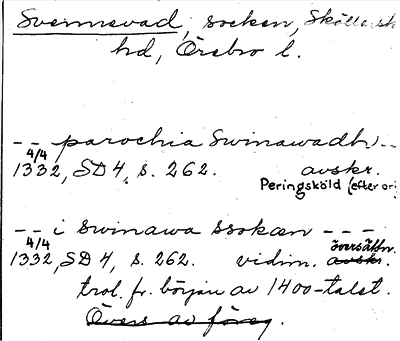 Svennevad, socken, Sköllersta
hd, Örebro l.
-- parochia Swinawadh --
4/4
1332, SD 4, s. 262. avskr.
Peringsköld (efter ori
-- i swinawa ssokæn ---
4/4 översättn.
1332, SD 4, s. 262. vidim. avskr.
trol. fr. början av 1400-talet.
Övers av föreg.